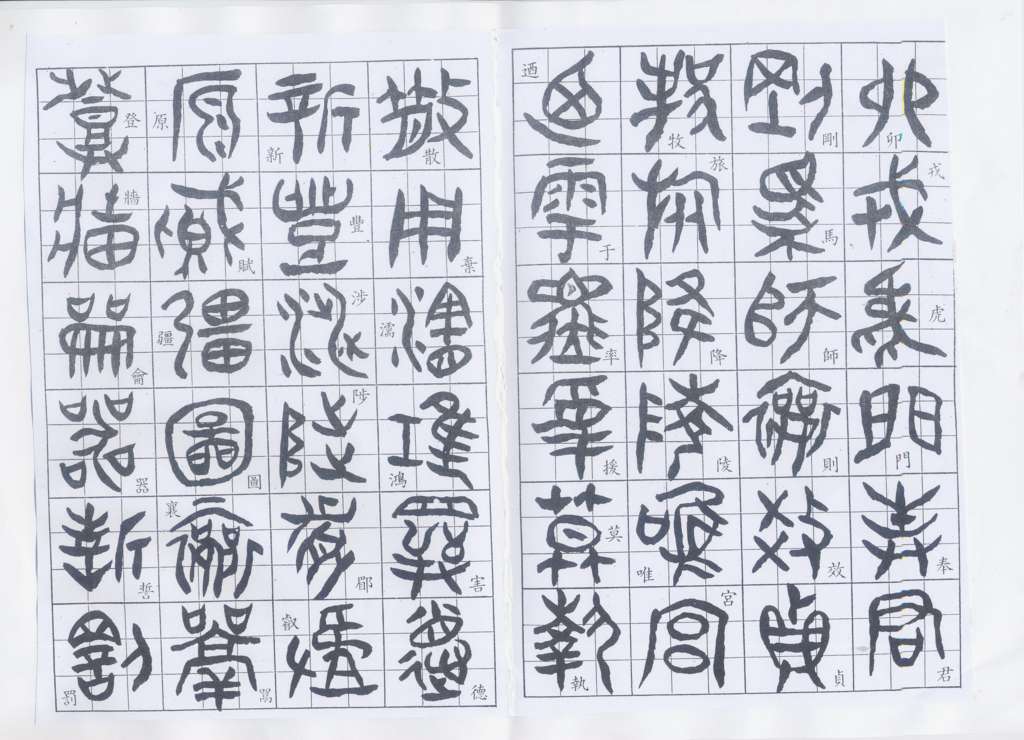 卯戎虎門奉君
剛馬師則效貞
牧旅降陵唯宮
迺于率援莫執
散棄濡鴻害德
新豐涉陟
原賦疆圖襄
登牆龠器誓罰